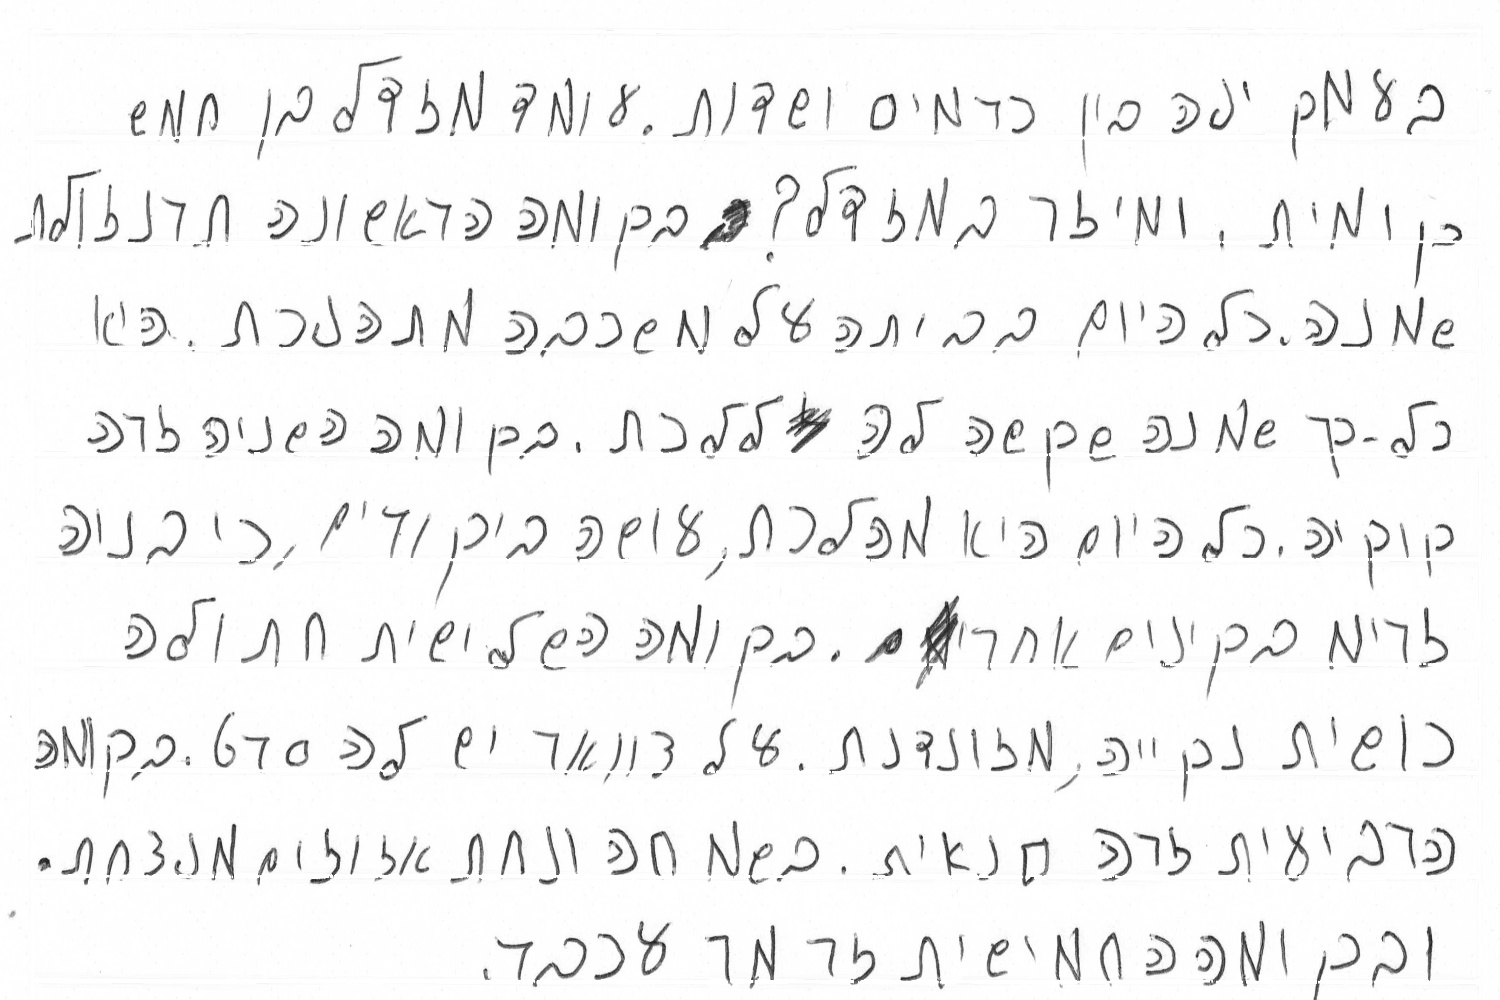 בעמק יפה בין כרמים ושדות. עומד מגדל בן חמש
קומית. ומי גר במגדל? בקומה הראשונה תרנגולת
שמנה. כל היום בביתה על משכבה מתהפכת. היא
כל-כך שמנה שקשה לה ללכת. בקומה השניה גרה
קוקיה. כל היום היא מהלכת, עושה ביקורים, כי בניה
גרימ בקינים אחרים. בקומה השלישית חתולה
כושית נקייה, מגונדנת. על צוואר יש לה סרט. בקומה
הרביעית גרה סנאית. בשמחה ונחת אגוזים מפצחת.
ובקומה החמישית גר מר עכבר.